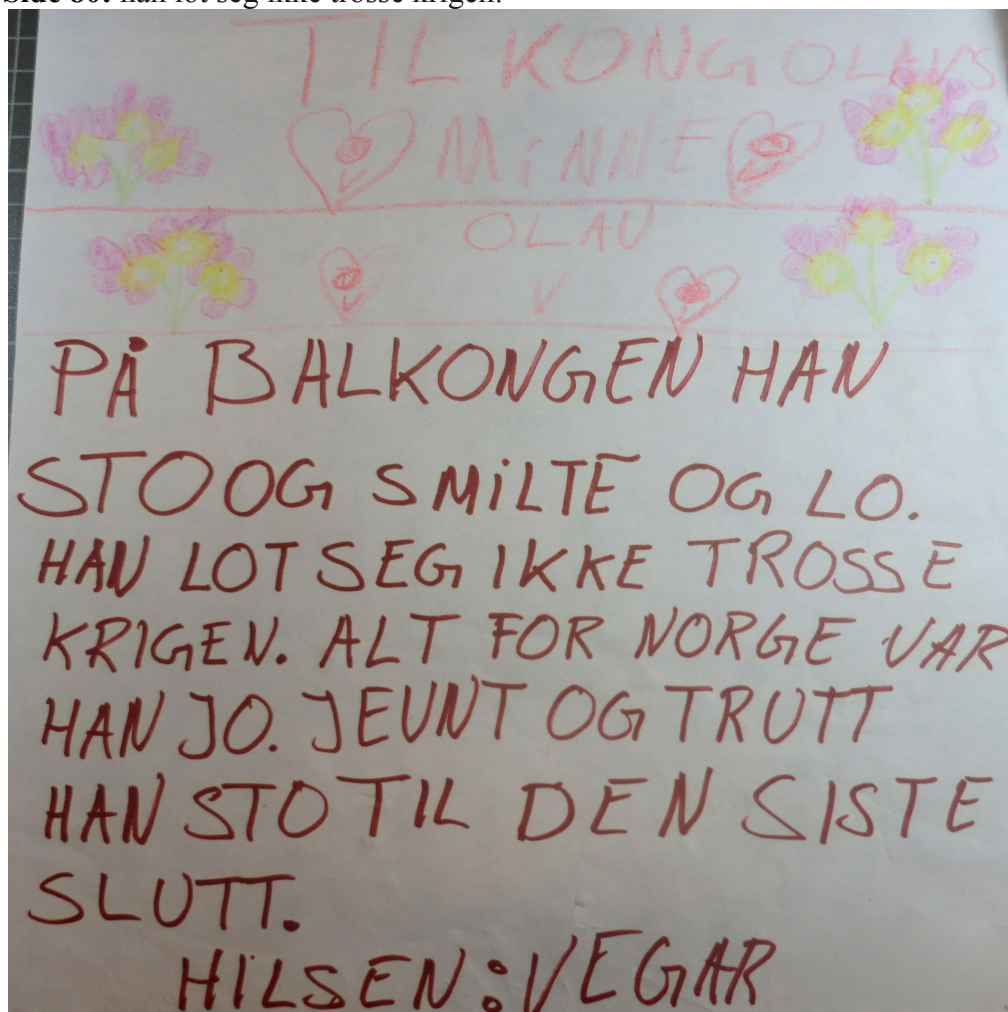 Side 80: han lot seg ikke trosse krigen.
TIL KONG OLAVS
MiNNE
OLAV
V
PÅ BALKONGEN HAN
STO OG SMiLTE OG LO.
HAN LOT SEG IKKE TROSSE
KRIGEN. ALT FOR NORGE VAR
HAN JO. JEVNT OG TRUTT
HAN STO TIL DEN SISTE
SLUTT.
HILSEN: VEGAR